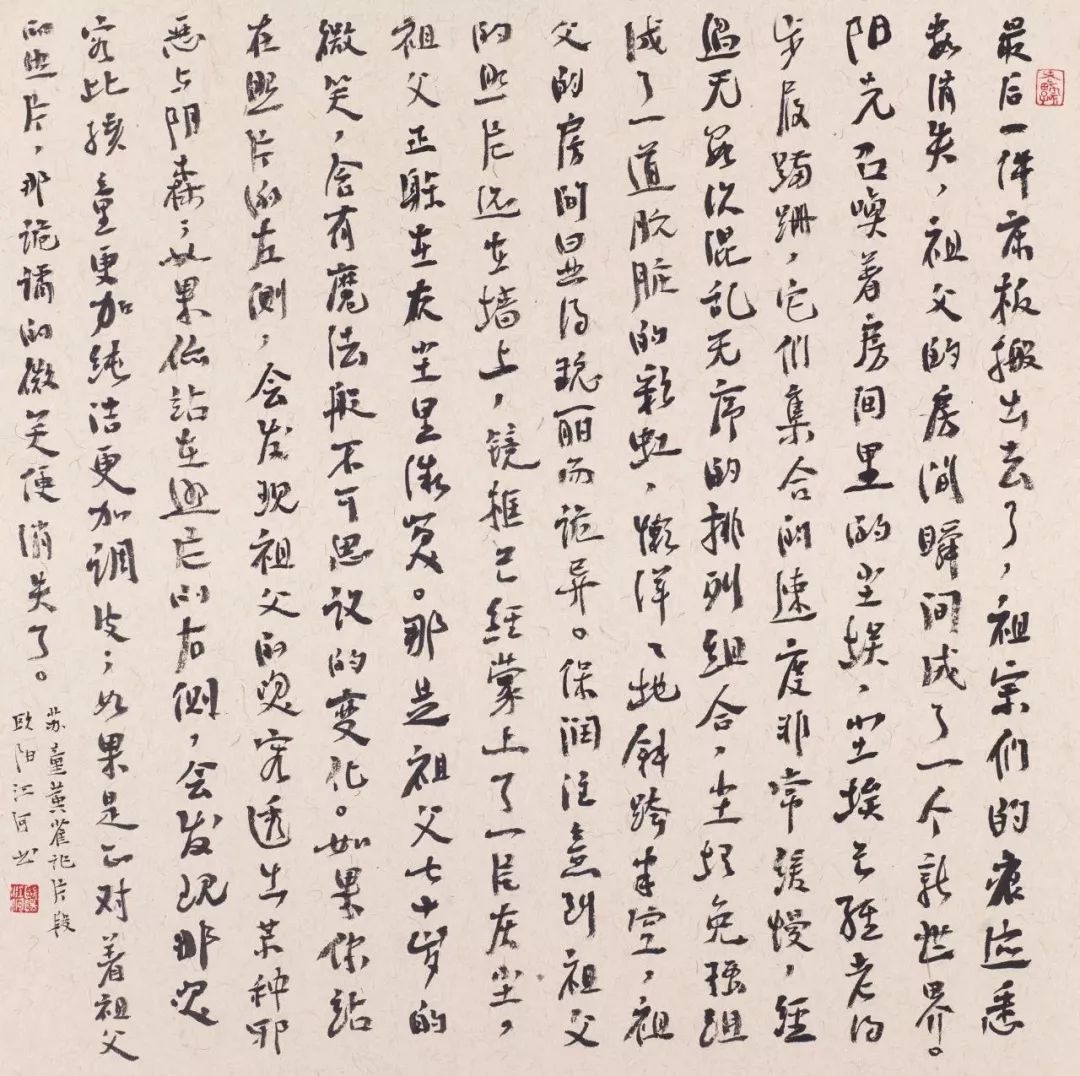 最后一件床板搬出去了，祖宗们的痕迹悉
数消失，祖父的房间瞬间成了一个新世界。
阳光召唤着房间里的尘埃，尘埃已经老得
步履蹒跚，它们集合的速度非常缓慢，经
过无数次混乱无序的排列组合，尘埃免强组
成了一道肮脏的彩虹，懒洋々地斜跨半空，祖
父的房间显得瑰丽而诡异。保润注意到祖父
的照片还在墙上，镜框已经蒙上了一片灰尘，
祖父正躲在灰尘里微笑。那是祖父七十岁的
微笑，含有魔法般不可思议的变化。如果你站
在照片的左侧，会发现祖父的笑容透出某种邪
恶与阴森；如果你站在照片的右侧，会发现那笑
容比孩童更加纯洁更加调皮；如果是正对着祖父
的照片，那诡谲的微笑便消失了。
苏童黄雀记片段
欧阳江河书